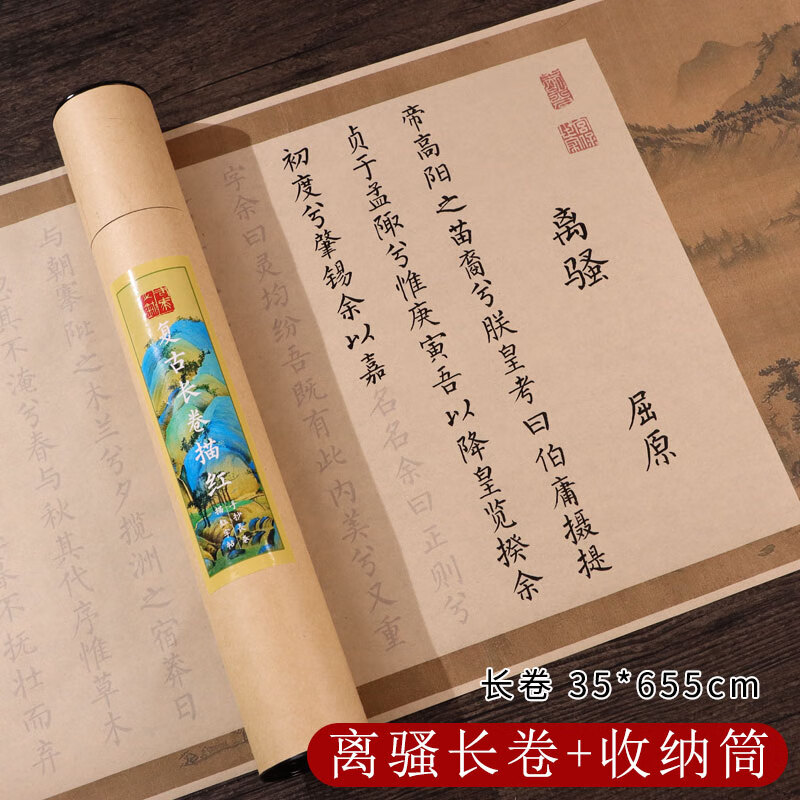 离骚
屈原
帝高阳之苗裔兮朕皇考曰伯庸摄提
贞于孟陬兮惟庚寅吾以降皇览揆余
初度兮肇锡余以嘉名名余曰正则兮
字余曰灵均纷吾既有此内美兮又重
与朝搴阰之木兰兮夕揽洲之宿莽日
其不淹兮春与秋其代序惟草木
暮不抚壮而弃
复古长卷描红
长卷 35*655cm
离骚长卷+收纳筒